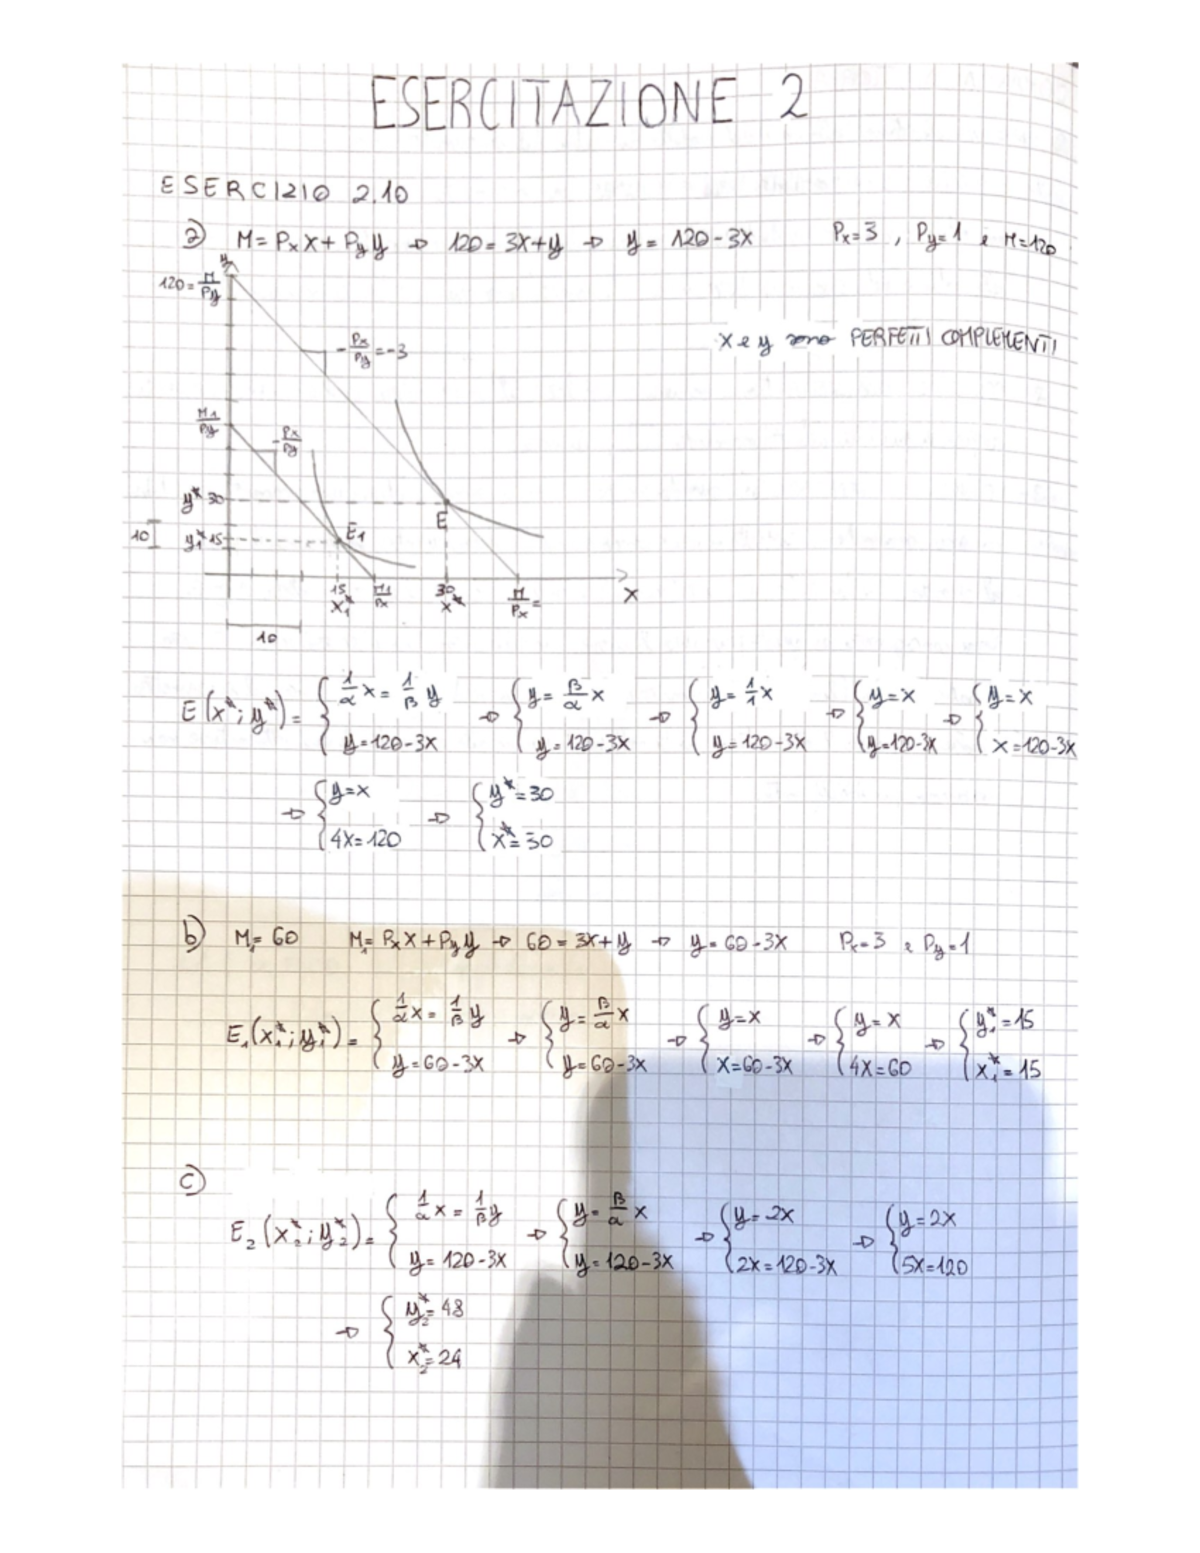 ESERCITAZIONE 2
ESERCIZIO 2.10
a) M = Px X + Py y → 120 = 3X + y → y = 120 - 3X Px = 3 , Py = 1 e M = 120
y
120 = M/Py
- Px/Py = -3
X e y sono PERFETTI COMPLEMENTI
M1/Py
- Px/Py
y* 30
E
10 y1* 15
E1
15 X1* M1/Px 30 X* M/Px = X
10
E (x*; y*) = { 1/α x = 1/β y ; y = 120 - 3X → { y = β/α x ; y = 120 - 3X → { y = 1/1 x ; y = 120 - 3X → { y = x ; y = 120 - 3X → { y = x ; x = 120 - 3X
→ { y = x ; 4X = 120 → { y* = 30 ; x* = 30
b) M1 = 60 M1 = Px X + Py y → 60 = 3X + y → y = 60 - 3X Px = 3 e Py = 1
E1 (x1*; y1*) = { 1/α x = 1/β y ; y = 60 - 3X → { y = β/α x ; y = 60 - 3X → { y = x ; x = 60 - 3X → { y = x ; 4X = 60 → { y1* = 15 ; x1* = 15
c)
E2 (x2*; y2*) = { 1/α x = 1/β y ; y = 120 - 3X → { y = β/α x ; y = 120 - 3X → { y = 2X ; 2X = 120 - 3X → { y = 2X ; 5X = 120
→ { y2* = 48 ; x2* = 24